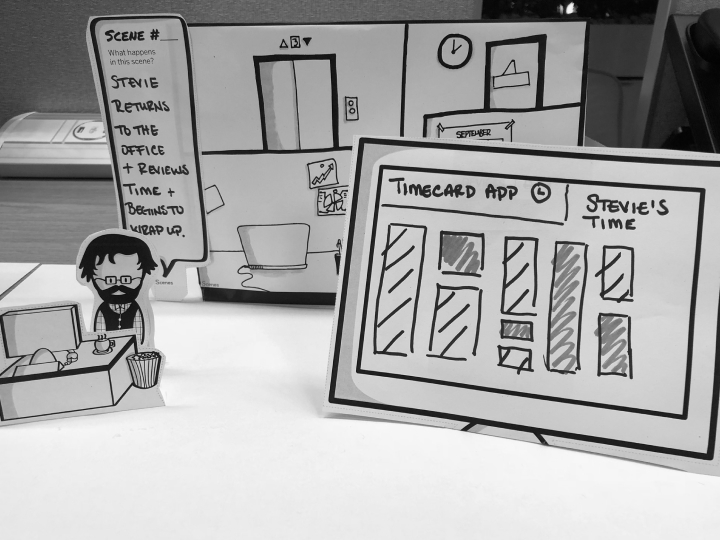 SCENE #__
What happens
in this scene?
STEVIE
RETURNS
TO THE
OFFICE
+ REVIEWS
TIME +
BEGINS TO
WRAP UP.
Scenes
Scenes
3
SEPTEMBER
TIMECARD APP
STEVIE'S
TIME